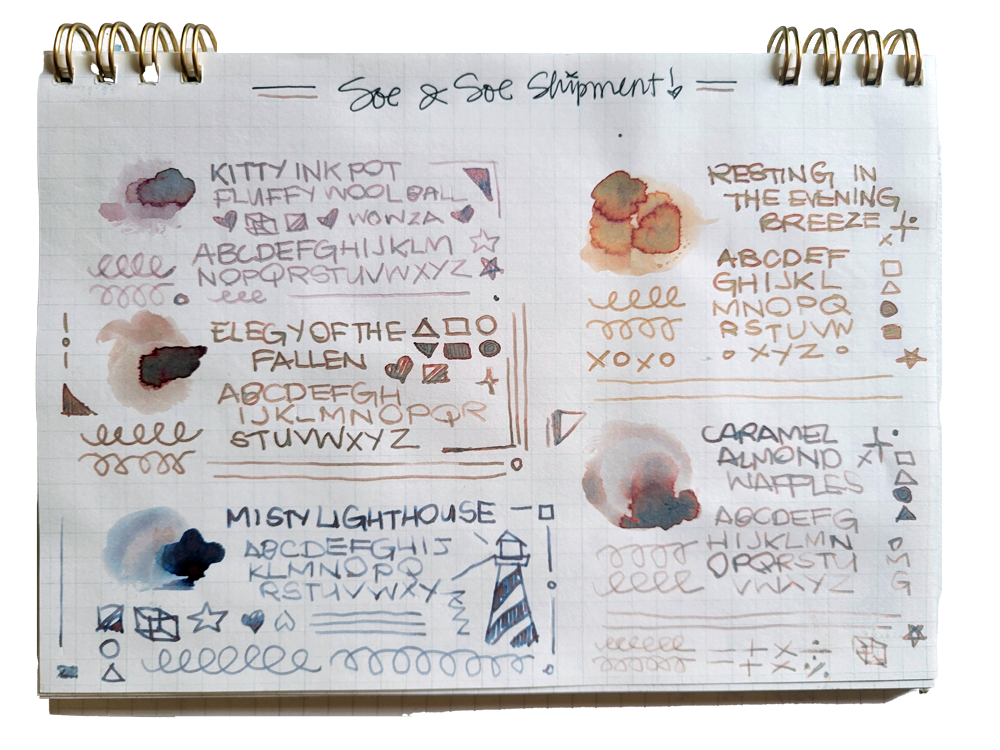 Soe & Soe Shipment!
KITTY INK POT
FLUFFY WOOL BALL
WOWZA
ABCDEFGHIJKLM
NOPQRSTUVWXYZ
ELEGY OF THE
FALLEN
ABCDEFGH
IJKLMNOPQR
STUVWXYZ
MISTY LIGHTHOUSE
ABCDEFGHIJ
KLMNOPQ
RSTUVWXY
Z
RESTING IN
THE EVENING
BREEZE
ABCDEF
GHIJKL
MNOPQ
RSTUVW
XYZ
XOXO
CARAMEL
ALMOND
WAFFLES
ABCDEFG
HIJKLMN
OPQRSTU
VWXYZ
O
M
G
- + × ÷
- + × %